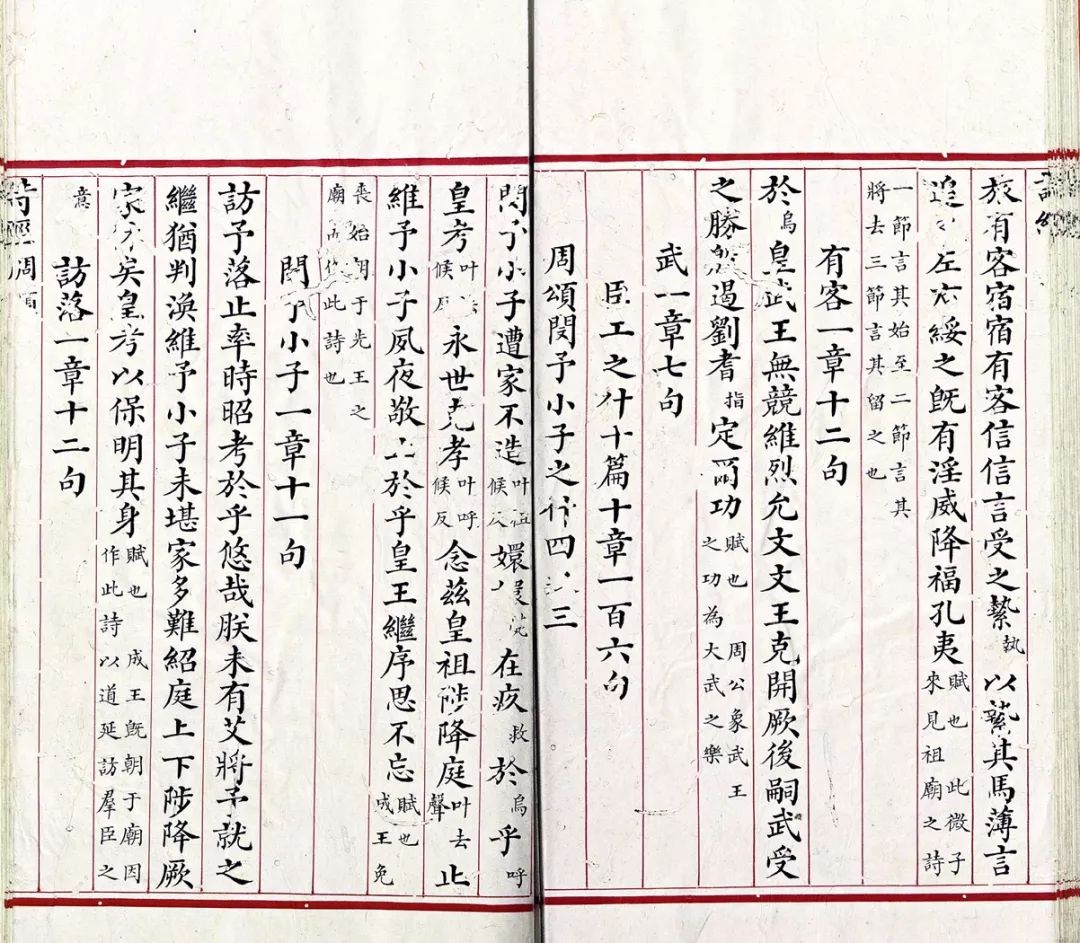 旅有客宿宿有客信信言受之縶執以縶其馬薄言
追之左右綏之既有淫威降福孔夷賦也此微子來見祖廟之詩
一節言其始至二節言其將去三節言其留之也
有客一章十二句
於烏皇武王無競維烈允文文王克開厥後嗣武受
之勝殷遏劉耆指定爾功賦也周公象武王之功為大武之樂
武一章七句
臣工之什十篇十章一百六句
周頌閔予小子之什四之三
閔予小子遭家不造叶徂候反嬛嬛煢在疚救於烏乎呼
皇考叶候反永世克孝叶呼候反念茲皇祖陟降庭叶去聲止
維予小子夙夜敬止於乎皇王繼序思不忘賦也成王免
喪始朝于先王之廟而作此詩也
閔予小子一章十一句
訪予落止率時昭考於乎悠哉朕未有艾將予就之
繼猶判渙維予小子未堪家多難紹庭上下陟降厥
家休矣皇考以保明其身賦也成王既朝于廟因作此詩以道延訪羣臣之
意
訪落一章十二句
詩經周頌